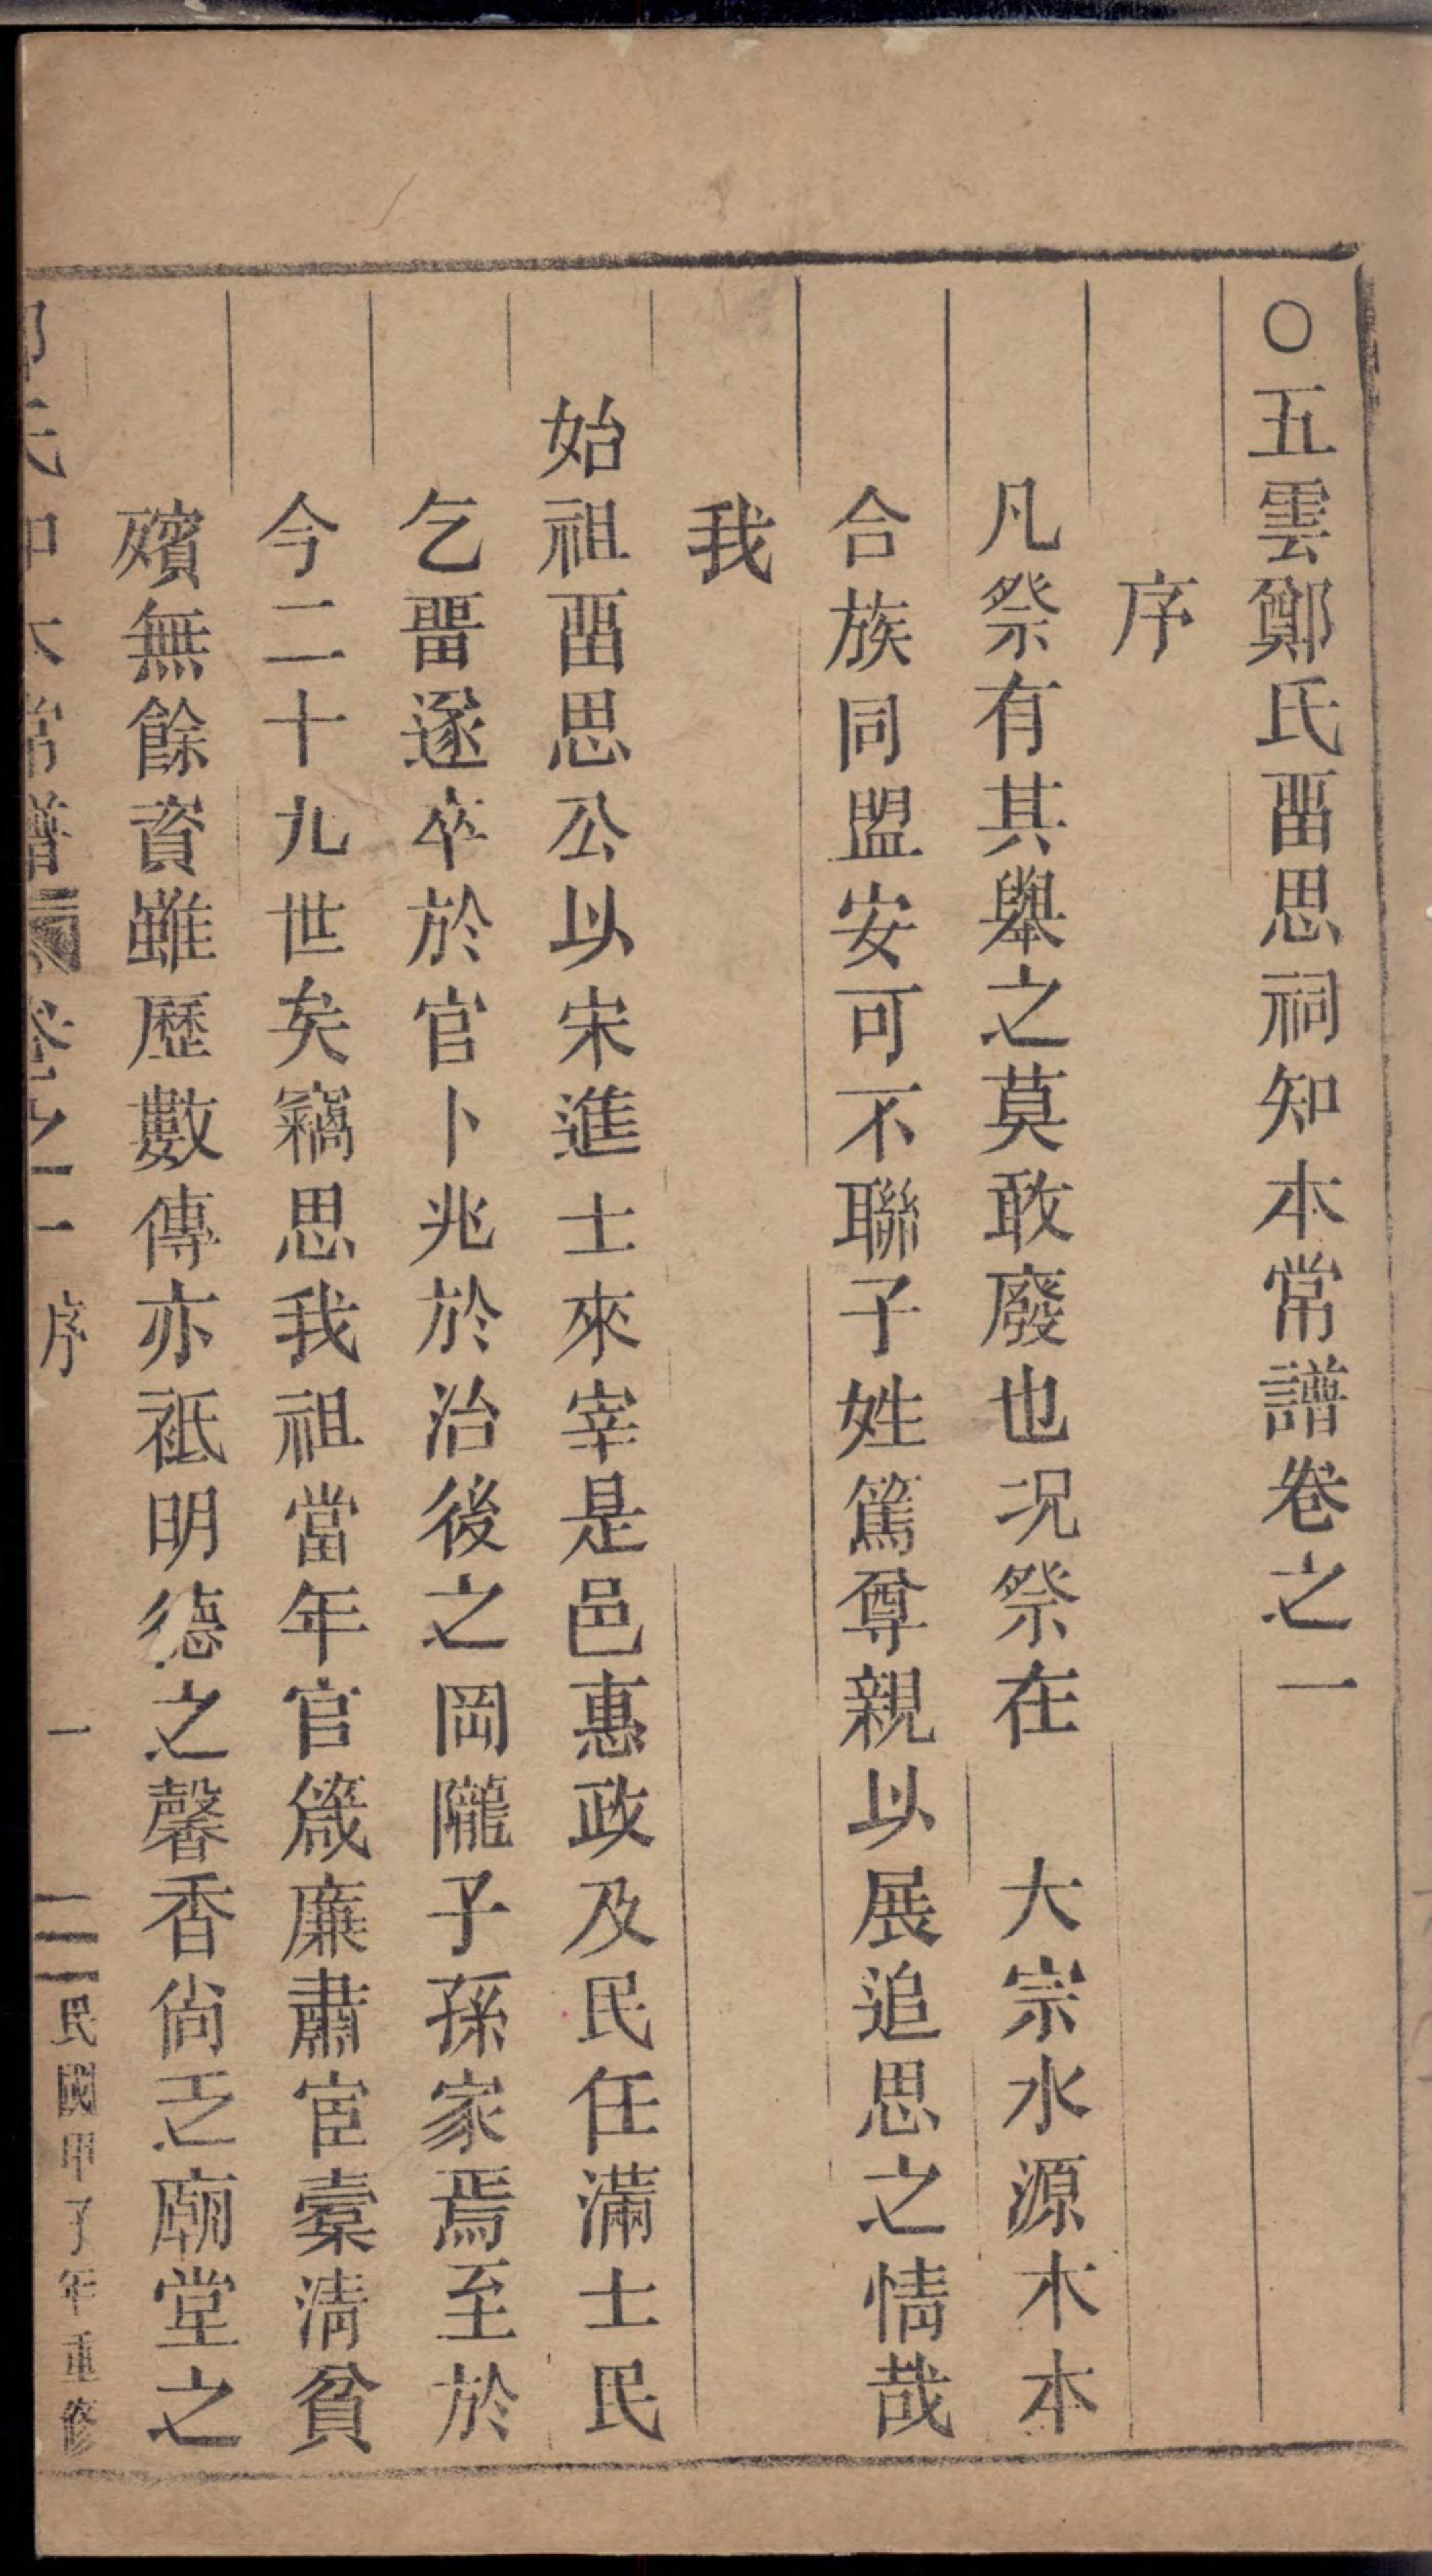 〇五雲鄭氏畱思祠知本常譜卷之一
序
凡祭有其舉之莫敢廢也况祭在　大宗水源木本
合族同盟安可不聯子姓篤尊親以展追思之情哉
我
始祖畱思公以宋進士來宰是邑惠政及民任滿士民
乞畱遂卒於官卜兆於治後之岡隴子孫家焉至於
今二十九世矣竊思我祖當年官箴廉肅宦橐清貧
殯無餘資雖歷數傳亦祗明德之馨香尙乏廟堂之
氏知本常譜 卷之一 序 一 民國甲子年重修